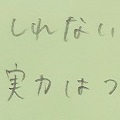 しれない
実力はつ